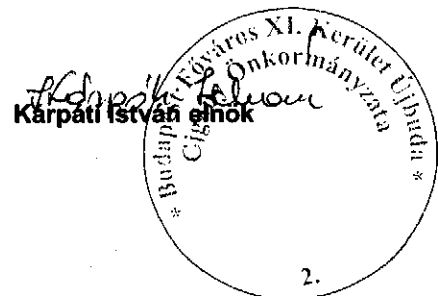 Kárpáti István
Kárpáti István elnök
* Budapest Főváros XI. Kerület Újbuda *
Cigány Önkormányzata
2.